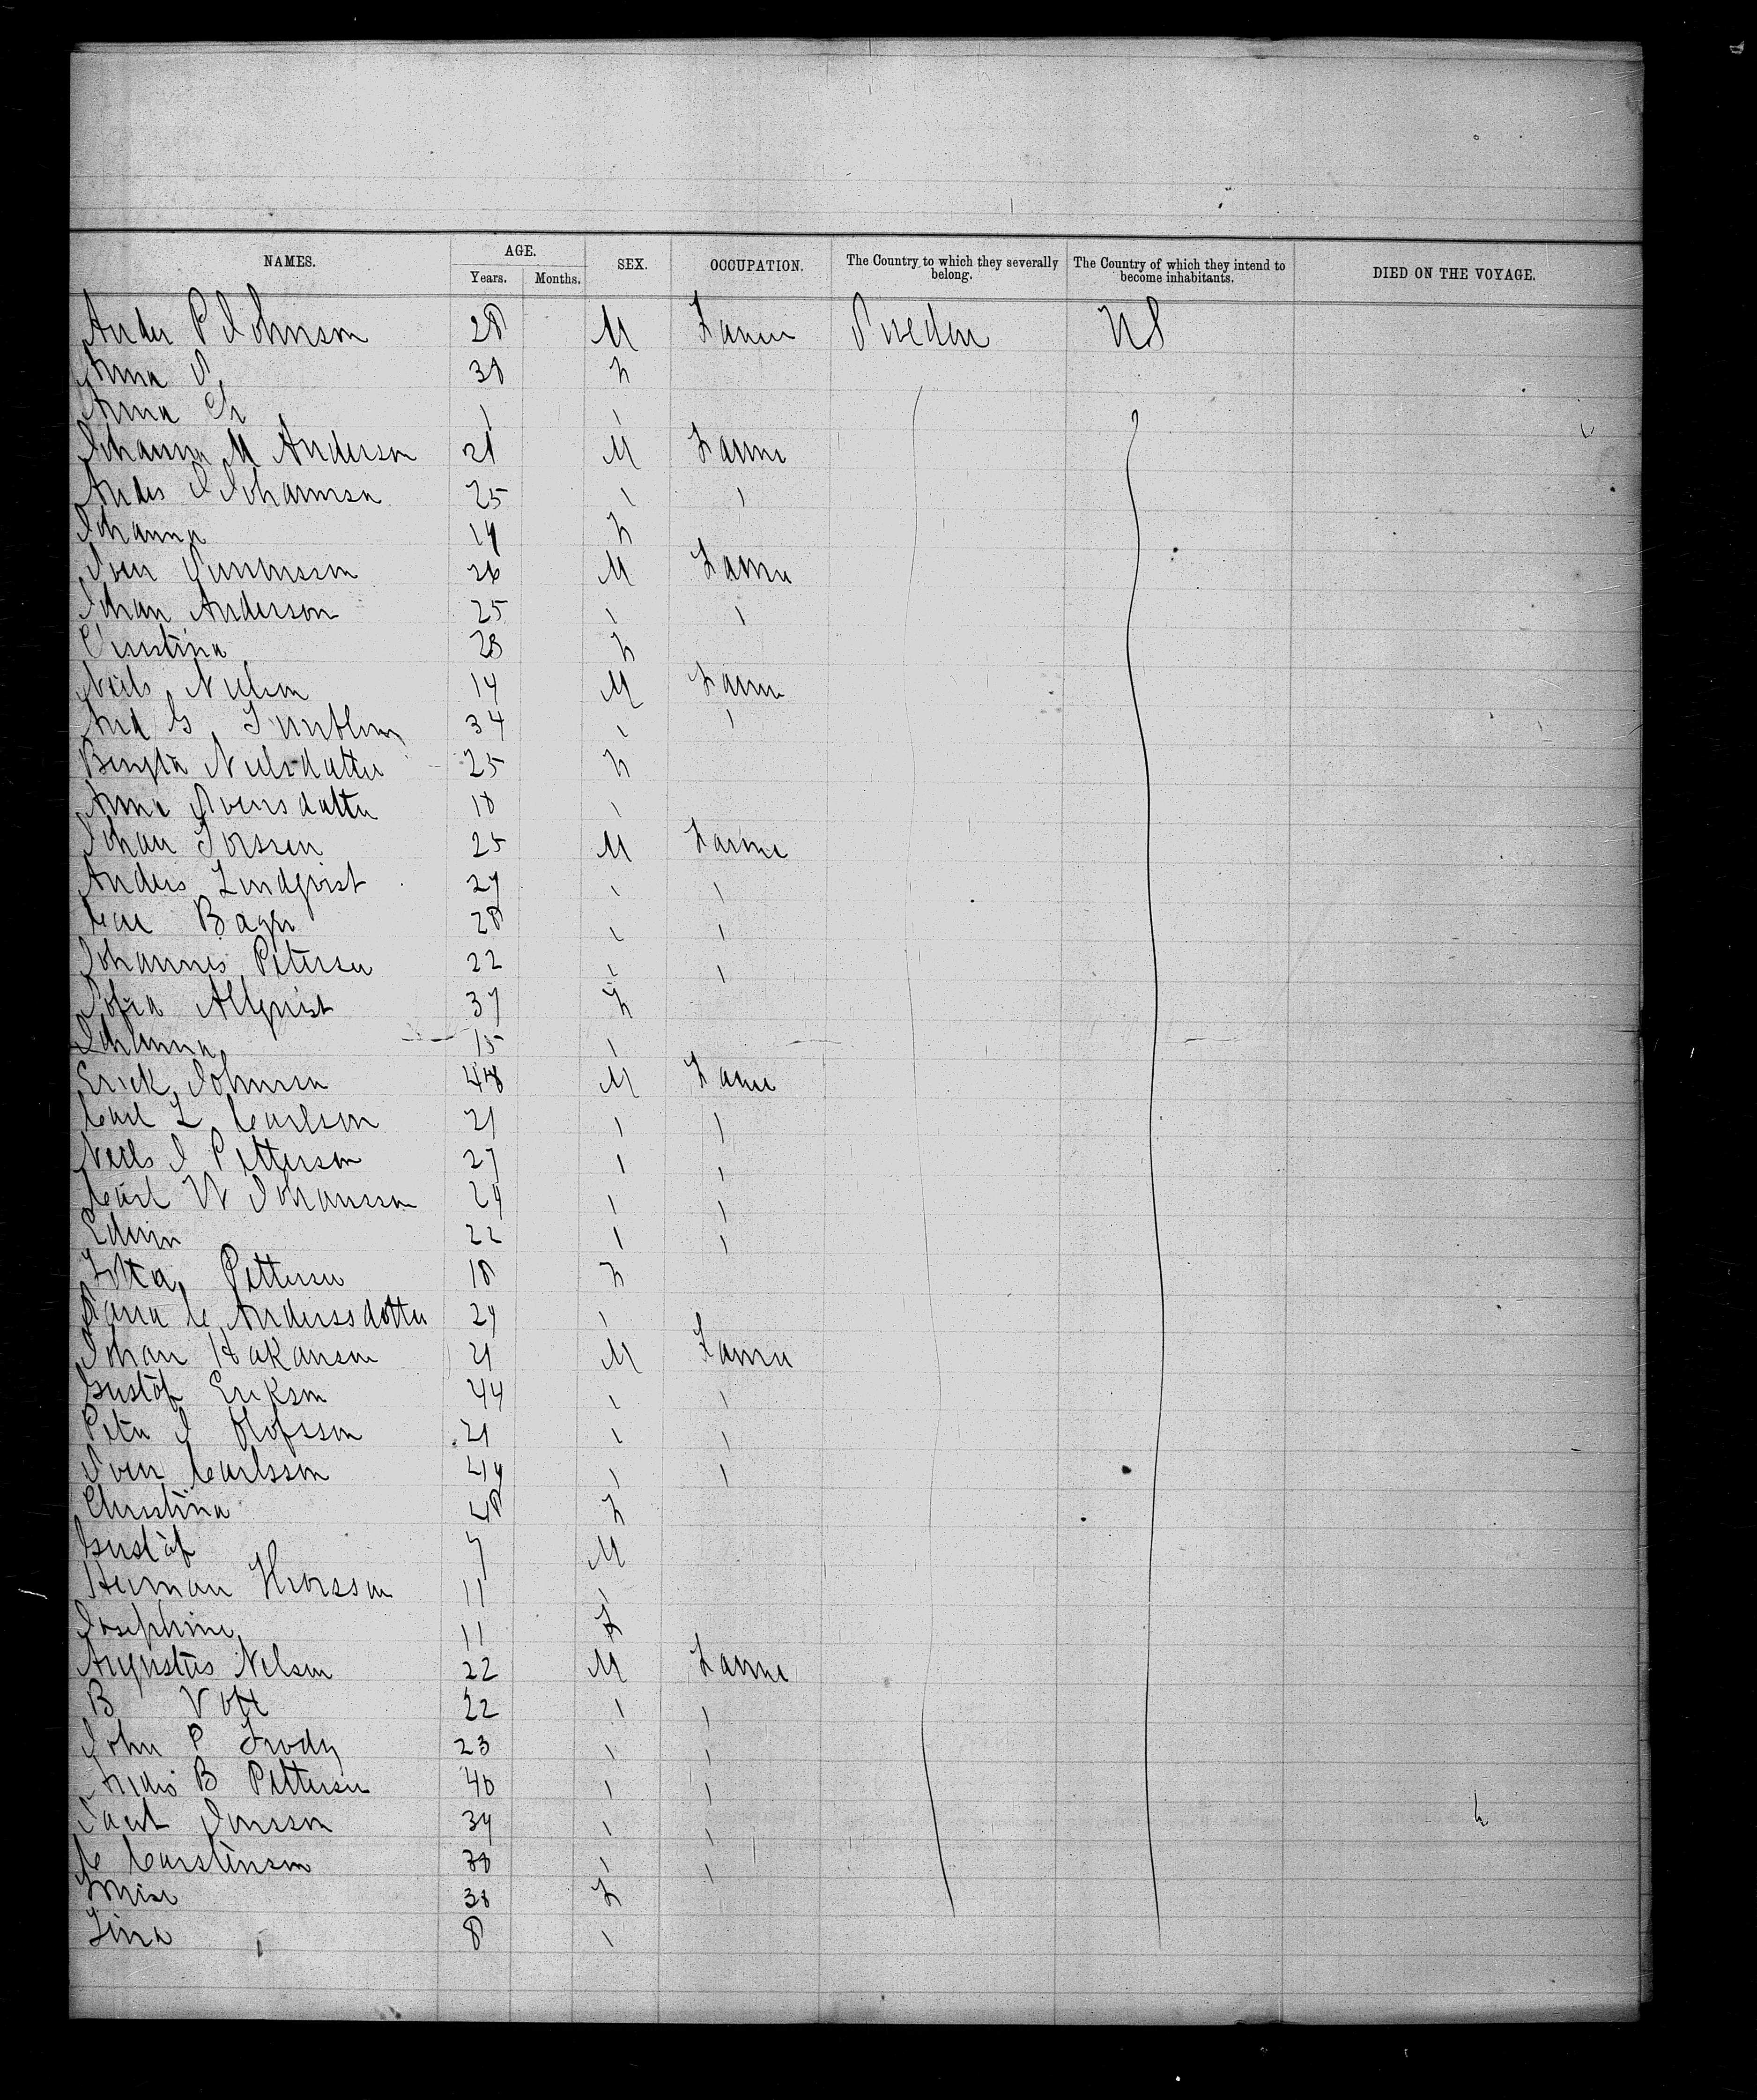 NAMES. AGE. SEX. OCCUPATION. The Country to which they severally belong. The Country of which they intend to become inhabitants. DIED ON THE VOYAGE.
Years. Months.
Ander P Johnson 28 M Farmer Sweden US
Anna S 38 F
Anna Ch 1 "
Johanna M Anderson 21 M Farmer
Andrs J Johannson 25 " "
Johanna 14 F
Sven 26 M Farmer
Johan Anderson 25 " "
Christina 28 F
Neils Nielson 14 M Farmer
And G 34 " "
Bengta Neilsdotter 25 F
Anna Svensdotter 18 "
Johan Torssen 25 M Farmer
Anders Lindqvist 27 " "
Carl Bager 28 " "
Johannes Petersen 22 " "
Sofia Allqvist 37 F
Johanna 15 "
Erick Johnson 48 M Farmer
Carl L Carlson 21 " "
Neils J Petterson 27 " "
Carl W Johansson 24 " "
Edwin 22 " "
Lotta Petterson 18 F
Sara C Anderssdotter 24 "
Johan Hakanson 21 M Farmer
Gustaf Erikson 44 " "
Peter J Olofsson 21 " "
Sven Carlsson 44 " "
Christina 48 F
Gustaf 7 M
Herman Thorsson 11 "
Josephine 11 F
Augustus Nelson 22 M Farmer
B Vott 22 " "
John P Frody 23 " "
Andrs B Petterson 40 " "
Jonsson 34 " "
C Carstenson 38 " "
Louise 38 F
Lina 8 "